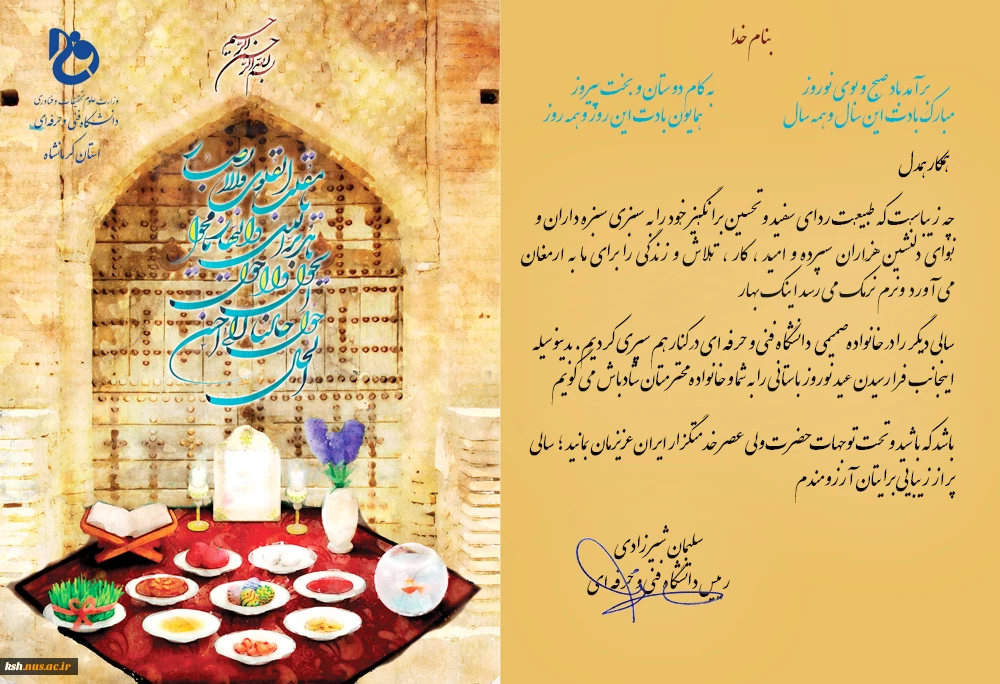 بسم الله الرحمن الرحیم
وزارت علوم تحقیقات و فناوری
دانشگاه فنی و حرفه ای
استان کرمانشاه
یا مقلب القلوب والابصار
یا مدبر اللیل والنهار یا محول
الحول والاحوال
حول حالنا الی احسن
الحال
ksh.nus.ac.ir
بنام خدا
برآمد باد صبح و بوی نوروز
به کام دوستان و بخت پیروز
مبارک بادت این سال و همه سال
همایون بادت این روز و همه روز
همکار همدل
چه زیباست که طبیعت ردای سفید و تحسین برانگیز خود را به سبزی سبزه داران و
نوای دلنشین هزاران سپرده و امید ، کار ، تلاش و زندگی را برای ما به ارمغان
می آورد و نرم نرمک می رسد اینک بهار
سالی دیگر را در خانواده صمیمی دانشگاه فنی و حرفه ای در کنار هم سپری کردیم . بدینوسیله
اینجانب فرا رسیدن عید نوروز باستانی را به شما و خانواده محترمتان شادباش می گویم
باشد که باشید و تحت توجهات حضرت ولی عصر خدمتگزار ایران عزیزمان بمانید ؛ سالی
پر از زیبایی برایتان آرزومندم
سلیمان شیرزادی
رییس دانشگاه فنی و حرفه ای